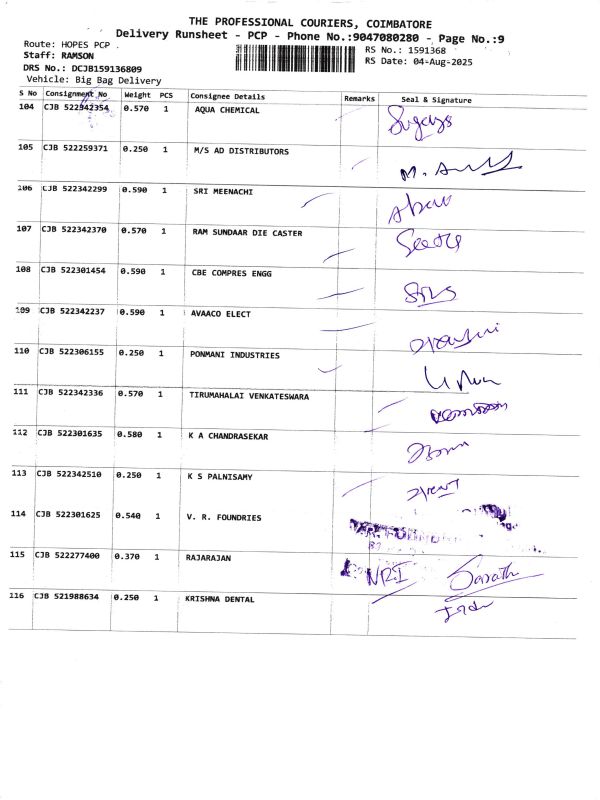 THE PROFESSIONAL COURIERS, COIMBATORE
Delivery Runsheet - PCP - Phone No.:9047080280 - Page No.:9
Route: HOPES PCP
RS No.: 1591368
Staff: RAMSON
RS Date: 04-Aug-2025
DRS No.: DCJB159136809
Vehicle: Big Bag Delivery
S No Consignment No Weight PCS Consignee Details Remarks Seal & Signature
104 CJB 522942354 0.570 1 AQUA CHEMICAL
105 CJB 522259371 0.250 1 M/S AD DISTRIBUTORS
106 CJB 522342299 0.590 1 SRI MEENACHI
107 CJB 522342370 0.570 1 RAM SUNDAAR DIE CASTER
108 CJB 522301454 0.590 1 CBE COMPRES ENGG
109 CJB 522342237 0.590 1 AVAACO ELECT
110 CJB 522306155 0.250 1 PONMANI INDUSTRIES
111 CJB 522342336 0.570 1 TIRUMAHALAI VENKATESWARA
112 CJB 522301635 0.580 1 K A CHANDRASEKAR
113 CJB 522342510 0.250 1 K S PALNISAMY
114 CJB 522301625 0.540 1 V. R. FOUNDRIES
115 CJB 522277400 0.370 1 RAJARAJAN NRI Sarath
116 CJB 521988634 0.250 1 KRISHNA DENTAL